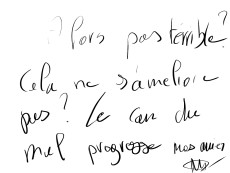 Alors pas terrible?
Cela ne s'améliore
pas? Le can du
mal progresse nos amis